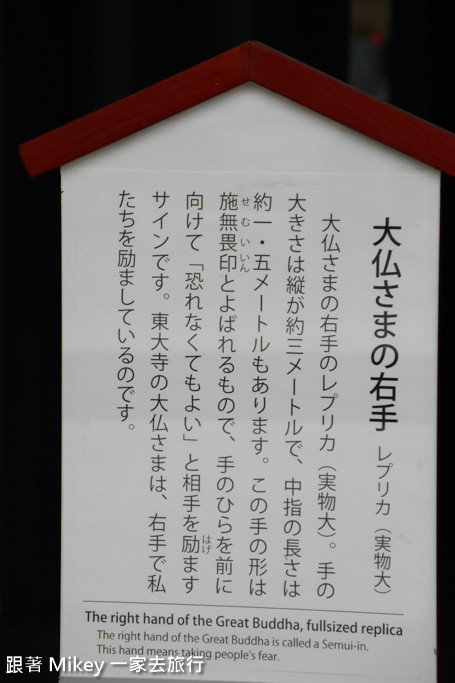 大仏さまの右手 レプリカ（実物大）
大仏さまの右手のレプリカ（実物大）。手の
大きさは縦が約三メートルで、中指の長さは
約一・五メートルもあります。この手の形は
施無畏印とよばれるもので、手のひらを前に
せむいいん
向けて「恐れなくてもよい」と相手を励ます
はげ
サインです。東大寺の大仏さまは、右手で私
たちを励ましているのです。
The right hand of the Great Buddha, fullsized replica
The right hand of the Great Buddha is called a Semui-in.
This hand means taking people's fear.
跟著 Mikey 一家去旅行